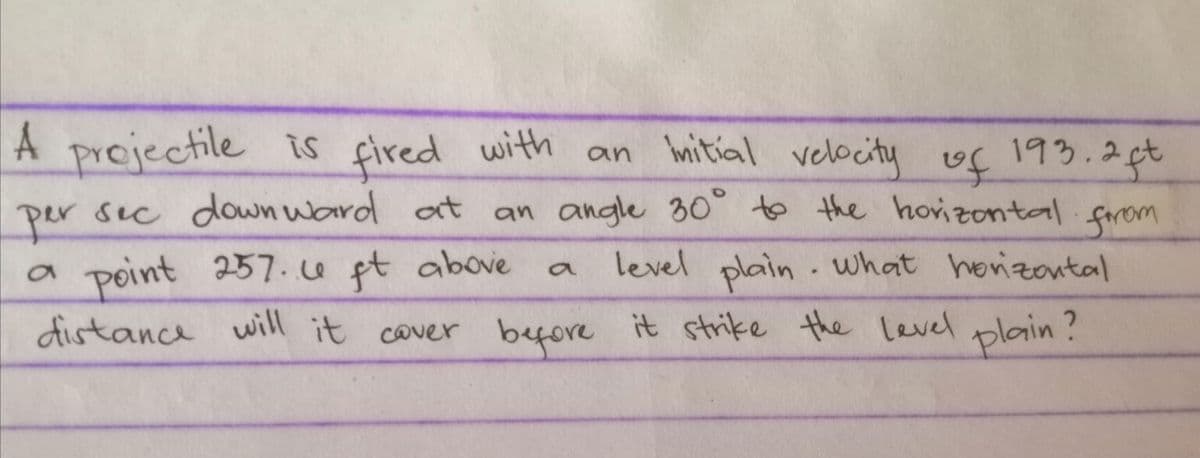 A projectile is fired with an initial velocity of 193.2 ft
per sec downward at an angle 30° to the horizontal from
a point 257.6 ft above a level plain. What horizontal
distance will it cover before it strike the level plain?